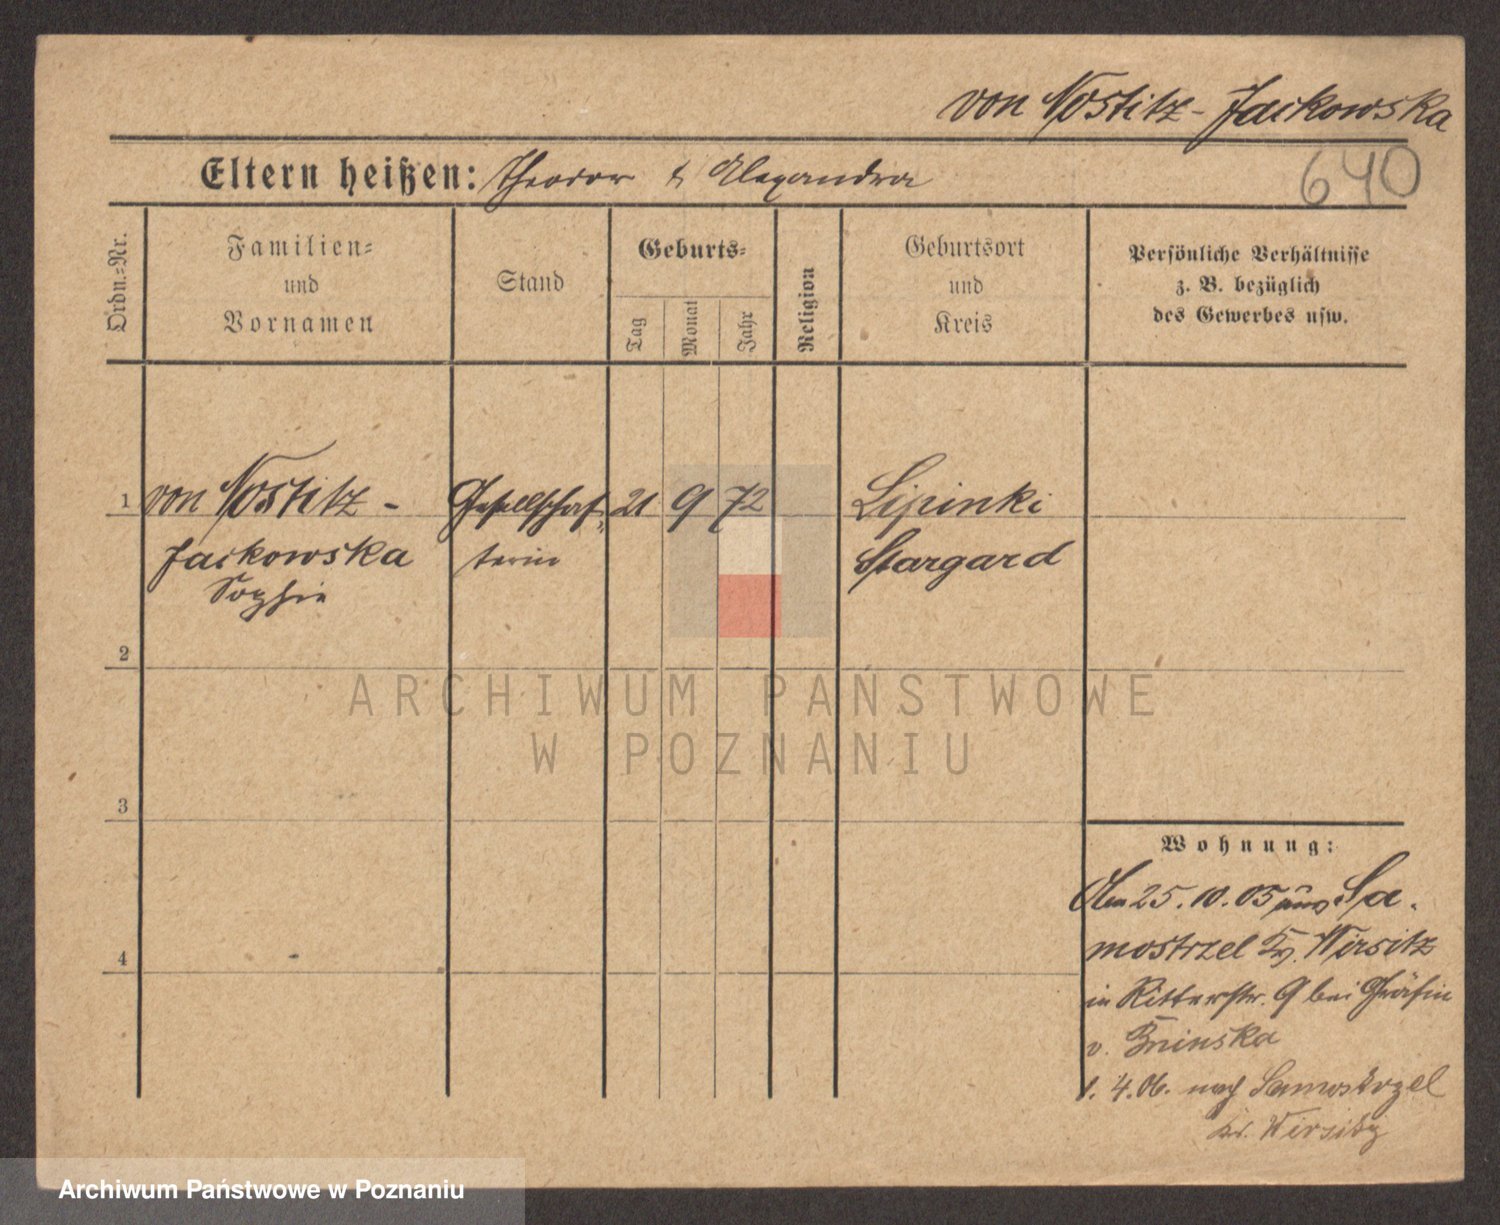 von Nostitz-Jackowska
Eltern heißen: Theodor & Alexandra
640
Ordn.=Nr.
Familien=
und
Vornamen
Stand
Geburts=
Tag
Monat
Jahr
Religion
Geburtsort
und
Kreis
Persönliche Verhältnisse
z. B. bezüglich
des Gewerbes usw.
1 von Nostitz- Gesellschaf= 21 9 72 Lipinki
Jackowska terin Stargard
Sophie
2
ARCHIWUM PAŃSTWOWE
W POZNANIU
3
Wohnung:
25.10.05 aus Sa-
4 mostrzel Kr. Wirsitz
in Ritterstr. 9 bei Gräfin
v. Bninska
1.4.06. nach Samostrzel
Kr. Wirsitz
Archiwum Państwowe w Poznaniu